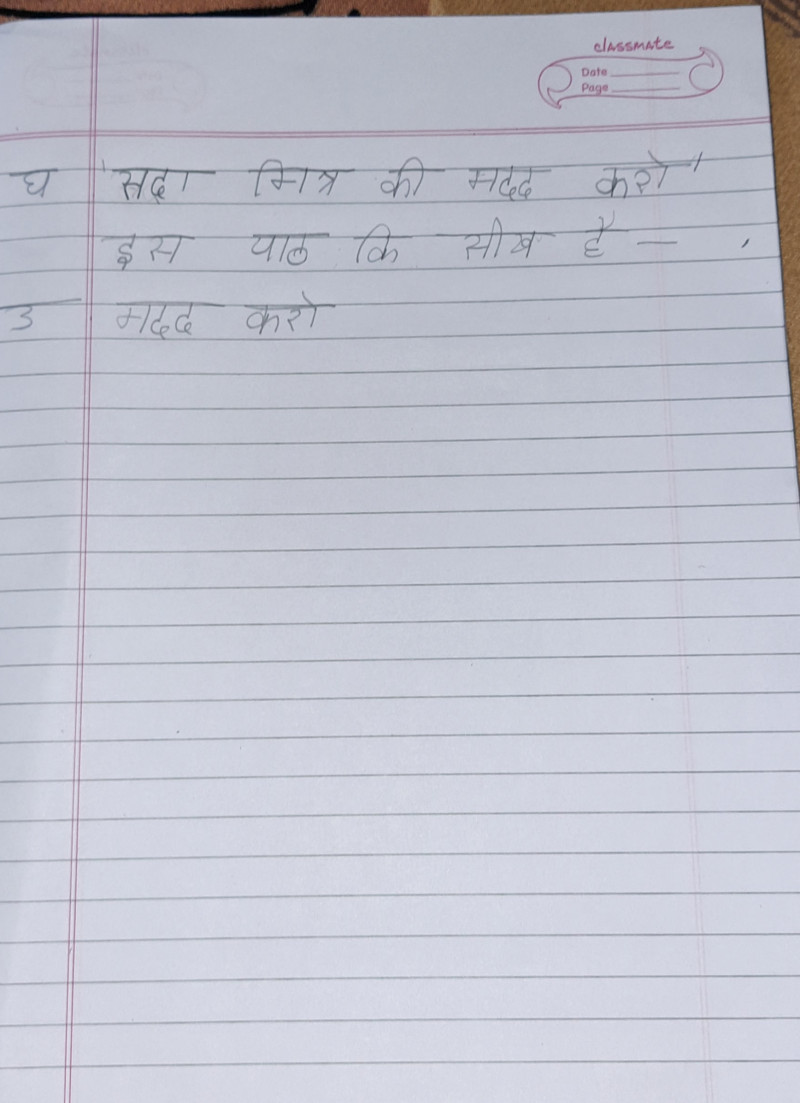 classmate
Date
Page
घ 'सदा मित्र की मदद करो'
इस पाठ कि सीख है —
उ मदद करो